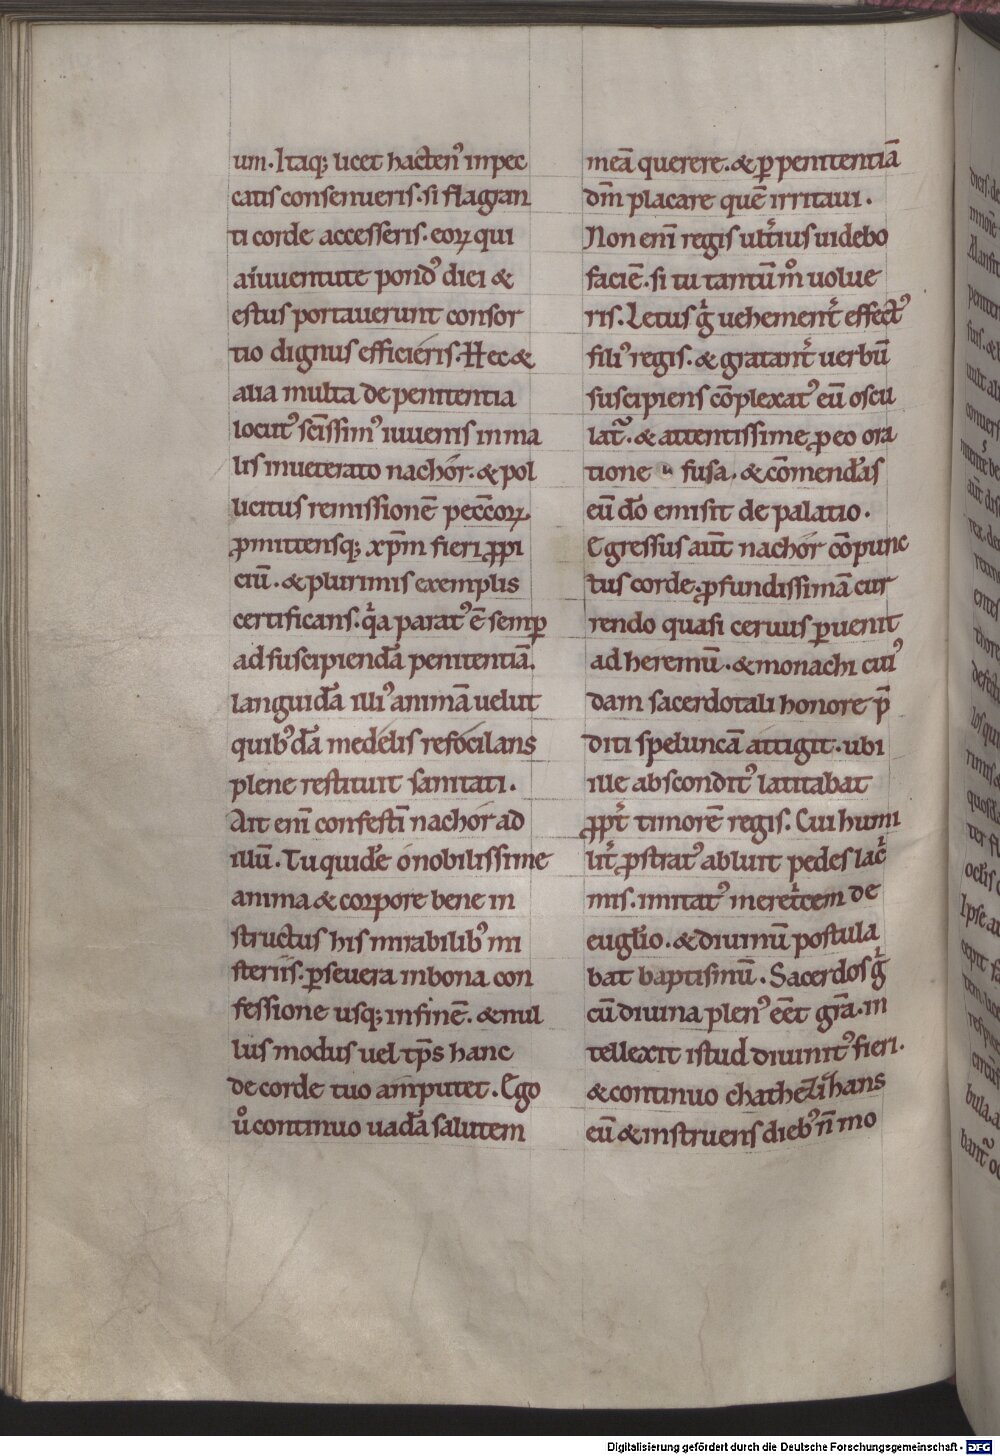 um. Itaq; licet hacten᾽ in pec
catis consenueris. si flagran
ti corde accesseris. eoꝝ qui
a iuuentute pond᾽ diei &
estus portauerunt consor
tio dignus efficieris. Hec &
alia multa de penitentia
locut᾽ sc̅issim᾽ iuuenis in ma
lis inueterato nachor. & pol
licitus remissione̅ pecc̅coꝝ.
ꝓmittensq; xp̅m fieri ꝓpi
ciu̅. & plurimis exemplis
certificans. qͥa parat᾽ e̅ semꝑ
ad suscipienda̅ penitentia̅.
languida̅ illi᾽ anima̅ uelut
quib᾽da̅ medelis refocilans
plene restituit sanitati.
Ait eni̅ confesti̅ nachor ad
illu̅. Tu quide̅ o nobilissime
anima & corpore bene in
structus his mirabilib᾽ mi
steriis. ꝑseuera in bona con
fessione usq; in fine̅. & nul
lus modus uel tp̅s hanc
de corde tuo amputet. Ego
uͦ continuo uada̅ salutem
mea̅ querere. & ꝑ penitentia̅
dm̅ placare que̅ irritaui.
Non eni̅ regis ult᾽ius uidebo
facie̅. si tu tantu̅mͦ uolue
ris. Letus gͥ uehement᾽ effect᾽
fili᾽ regis. & gratant᾽ uerbu̅
suscipiens co̅plexat᾽ eu̅ oscu
lat᾽. & attentissime ꝓ eo ora
tione fusa. & co̅menda̅s
eu̅ do̅ emisit de palatio.
Egressus aut̅ nachor co̅punc
tus corde. ꝓfundissima̅ cur
rendo quasi ceruus ꝑuenit
ad heremu̅. & monachi cui᾽
dam sacerdotali honore p̅
diti spelunca̅ attigit. ubi
ille abscondit᾽ latitabat
ꝓpt᾽ timore̅ regis. Cui humi
lit᾽ ꝓstrat᾽ abluit pedes lac᾽
mis. imitat᾽ meret᾽cem de
eug̅lio. & diuinu̅ postula
bat baptismu̅. Sacerdos gͥ
cu̅ diuina plen᾽ ee̅t gr̅a. in
tellexit istud diuinit᾽ fieri.
& continuo chathezizans
eu̅ & instruens dieb᾽ n̅ mo